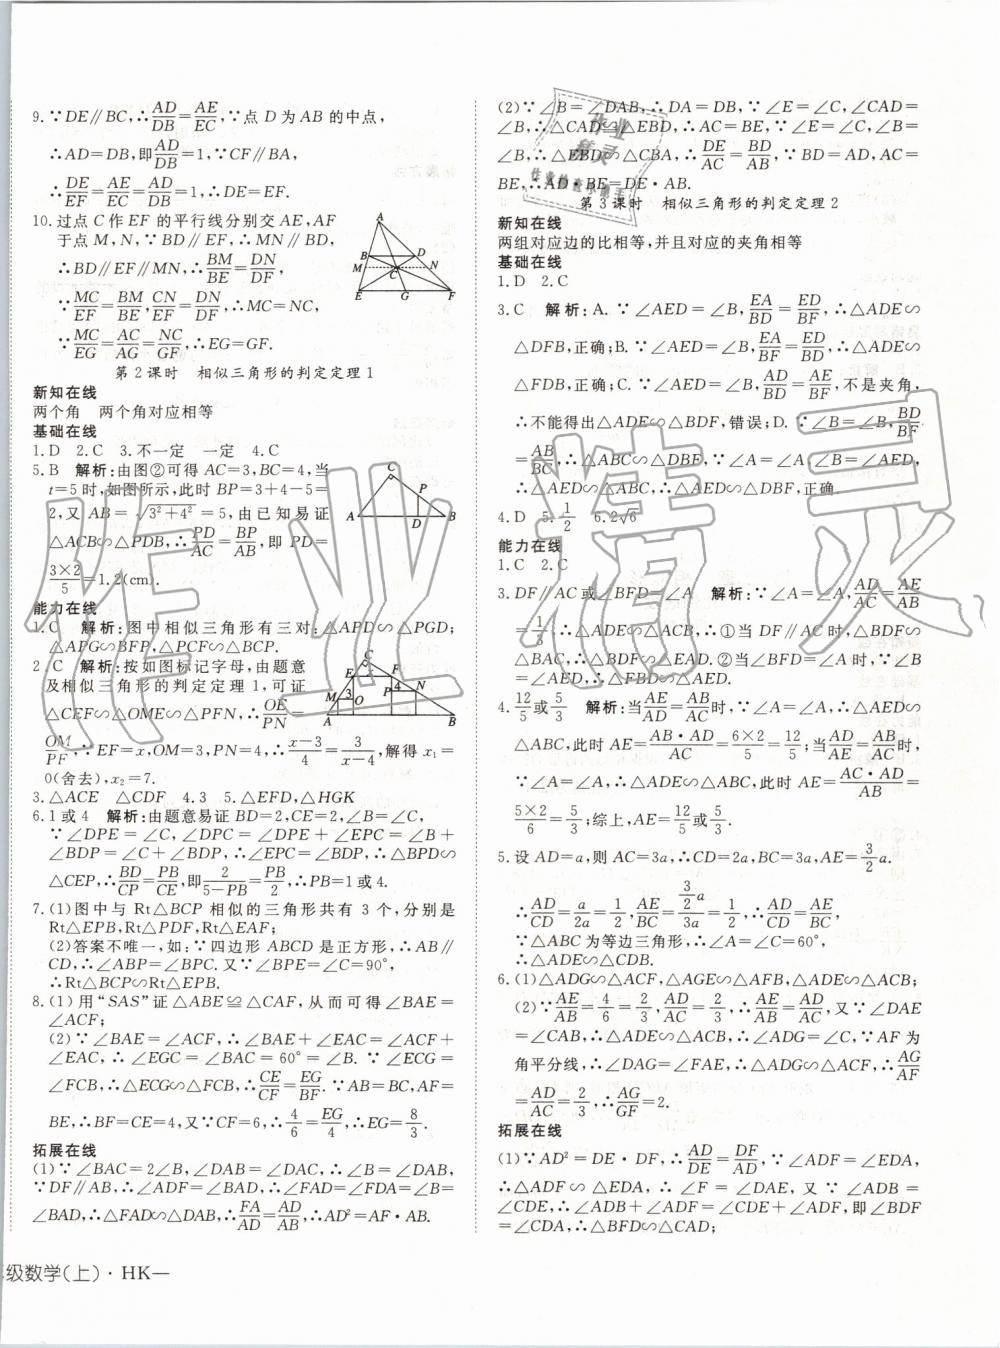 9. ∵DE∥BC,∴AD/DB=AE/EC,∵点 D 为 AB 的中点,
∴AD=DB,即AD/DB=1,∵CF∥BA,
∴DE/EF=AE/EC=AD/DB=1,∴DE=EF.
10. 过点 C 作 EF 的平行线分别交 AE,AF
于点 M,N,∵BD∥EF,∴MN∥BD,
∴BD∥EF∥MN,∴BM/BE=DN/DF,
∵MC/EF=BM/BE,CN/EF=DN/DF,∴MC=NC,
∵MC/EG=AC/AG=NC/GF,∴EG=GF.
A
B D
M C N
E G F
第 2 课时 相似三角形的判定定理 1
新知在线
两个角 两个角对应相等
基础在线
1. D 2. C 3. 不一定 一定 4. C
5. B 解析:由图②可得 AC=3,BC=4,当
t=5 时,如图所示,此时 BP=3+4-5=
2,又 AB=√(3²+4²)=5,由已知易证
△ACB∽△PDB,∴PD/AC=BP/AB,即 PD=
3×2/5=1.2(cm).
C
P
A D B
能力在线
1. C 解析:图中相似三角形有三对:△APD∽△PGD;
△APG∽BFP,△PCF∽△BCP.
2. C 解析:按如图标记字母,由题意
及相似三角形的判定定理 1,可证
△CEF∽△OME∽△PFN,∴OE/PN=
OM/PF,∴EF=x,OM=3,PN=4,∴x-3/4=3/x-4,解得 x₁=
0(舍去),x₂=7.
C
E F
M 3 P 4 N
A O B
3. △ACE △CDF 4. 3 5. △EFD,△HGK
6. 1 或 4 解析:由题意易证 BD=2,CE=2,∠B=∠C,
∵∠DPE=∠C,∠DPC=∠DPE+∠EPC=∠B+
∠BDP=∠C+∠BDP,∴∠EPC=∠BDP,∴△BPD∽
△CEP,∴BD/CP=PB/CE,即2/5-PB=PB/2,∴PB=1 或 4.
7. (1)图中与 Rt△BCP 相似的三角形共有 3 个,分别是
Rt△EPB,Rt△PDF,Rt△EAF;
(2)答案不唯一,如:∵四边形 ABCD 是正方形,∴AB∥
CD,∴∠ABP=∠BPC.又∵∠BPE=∠C=90°,
∴Rt△BCP∽Rt△EPB.
8. (1)用“SAS”证△ABE≌△CAF,从而可得∠BAE=
∠ACF;
(2)∵∠BAE=∠ACF,∴∠BAE+∠EAC=∠ACF+
∠EAC,∴∠EGC=∠BAC=60°=∠B.∵∠ECG=
∠FCB,∴△ECG∽△FCB,∴CE/CF=EG/BF.∵AB=BC,AF=
BE,∴BF=CE=4,又∵CF=6,∴4/6=EG/4,∴EG=8/3.
拓展在线
(1)∵∠BAC=2∠B,∠DAB=∠DAC,∴∠B=∠DAB,
∵DF∥AB,∴∠ADF=∠BAD,∴∠FAD=∠FDA=∠B=
∠BAD,∴△FAD∽△DAB,∴FA/AD=AD/AB,∴AD²=AF·AB.
级数学(上)·HK—
(2)∵∠B=∠DAB,∴DA=DB,∵∠E=∠C,∠CAD=
∠B,∴△CAD≌△EBD,∴AC=BE,∵∠E=∠C,∠B=
∠B,∴△EBD∽△CBA,∴DE/AC=BD/AB,∵AC=
BE,∴AD·BE=DE·AB.
第 3 课时 相似三角形的判定定理 2
新知在线
两组对应边的比相等,并且对应的夹角相等
基础在线
1. D 2. C
3. C 解析:A. ∵∠AED=∠B,EA/BD=ED/BF,∴△ADE∽
△DFB,正确;B. ∵∠AED=∠B,EA/BF=ED/BD,∴△ADE∽
△FDB,正确;C. ∵∠AED=∠B,AD/BD=AE/BF,不是夹角,
∴不能得出△ADE∽△BDF,错误;D. ∵∠B=∠B,BD/BF
=AB/BC,∴△ABC∽△DBF,∵∠A=∠A,∠AED=∠B,
∴△AED∽△ABC,∴△AED∽△DBF,正确.
4. D 5. 1/2 6. 2√6
能力在线
1. C 2. C
3. DF∥AC或∠BFD=∠A 解析:∵∠A=∠A,AD/AC=AE/AB
=1/3,∴△ADE∽△ACB,∴①当 DF∥AC 时,△BDF∽
△BAC,∴△BDF∽△EAD. ②当∠BFD=∠A 时,∵∠B
=∠AED,∴△FBD∽△AED.
4. 12/5或5/3 解析:当AE/AD=AB/AC时,∵∠A=∠A,∴△AED∽
△ABC,此时 AE=AB·AD/AC=6×2/5=12/5;当AD/AE=AB/AC时,
∵∠A=∠A,∴△ADE∽△ABC,此时 AE=AC·AD/AB=
5×2/6=5/3;综上,AE=12/5或5/3.
5. 设 AD=a,则 AC=3a,∴CD=2a,BC=3a,AE=3/2a.
∴AD/CD=a/2a=1/2,AE/BC=3/2a/3a=1/2,∴AD/CD=AE/BC,
∵△ABC 为等边三角形,∴∠A=∠C=60°,
∴△ADE∽△CDB.
6. (1)△ADG∽△ACF,△AGE∽△AFB,△ADE∽△ACB;
(2)∵AE/AB=4/6=2/3,AD/AC=2/3,∴AE/AB=AD/AC,又∵∠DAE
=∠CAB,∴△ADE∽△ACB,∴∠ADG=∠C,∵AF 为
角平分线,∴∠DAG=∠FAE,∴△ADG∽△ACF,∴AG/AF
=AD/AC=2/3,∴AG/GF=2.
拓展在线
(1)∵AD²=DE·DF,∴AD/DE=DF/AD,∵∠ADF=∠EDA,
∴△ADF∽△EDA,∴∠F=∠DAE,又∵∠ADB=
∠CDE,∴∠ADB+∠ADF=∠CDE+∠ADF,∴∠BDF
=∠CDA,∴△BFD∽△CDA;
作业精灵
作业
精灵
作业检查小帮手